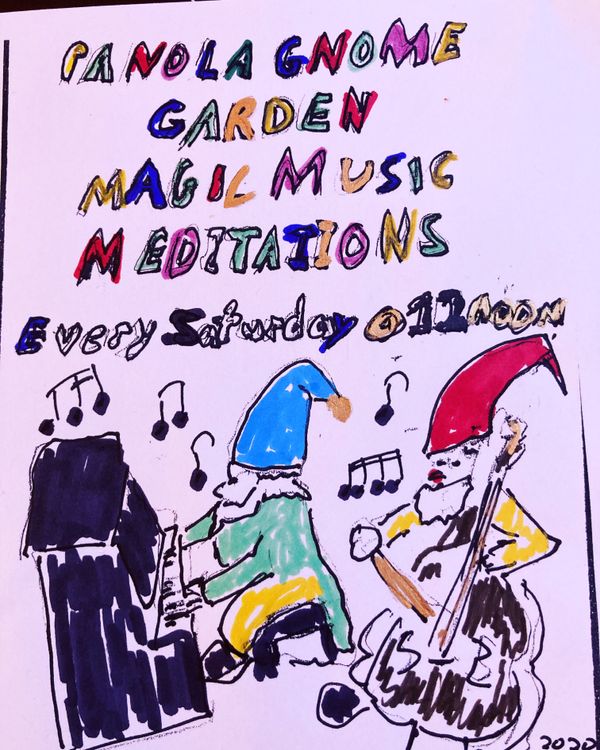 PANOLA GNOME
GARDEN
MAGIC MUSIC
MEDITATIONS
Every Saturday @ 12 NOON
2020